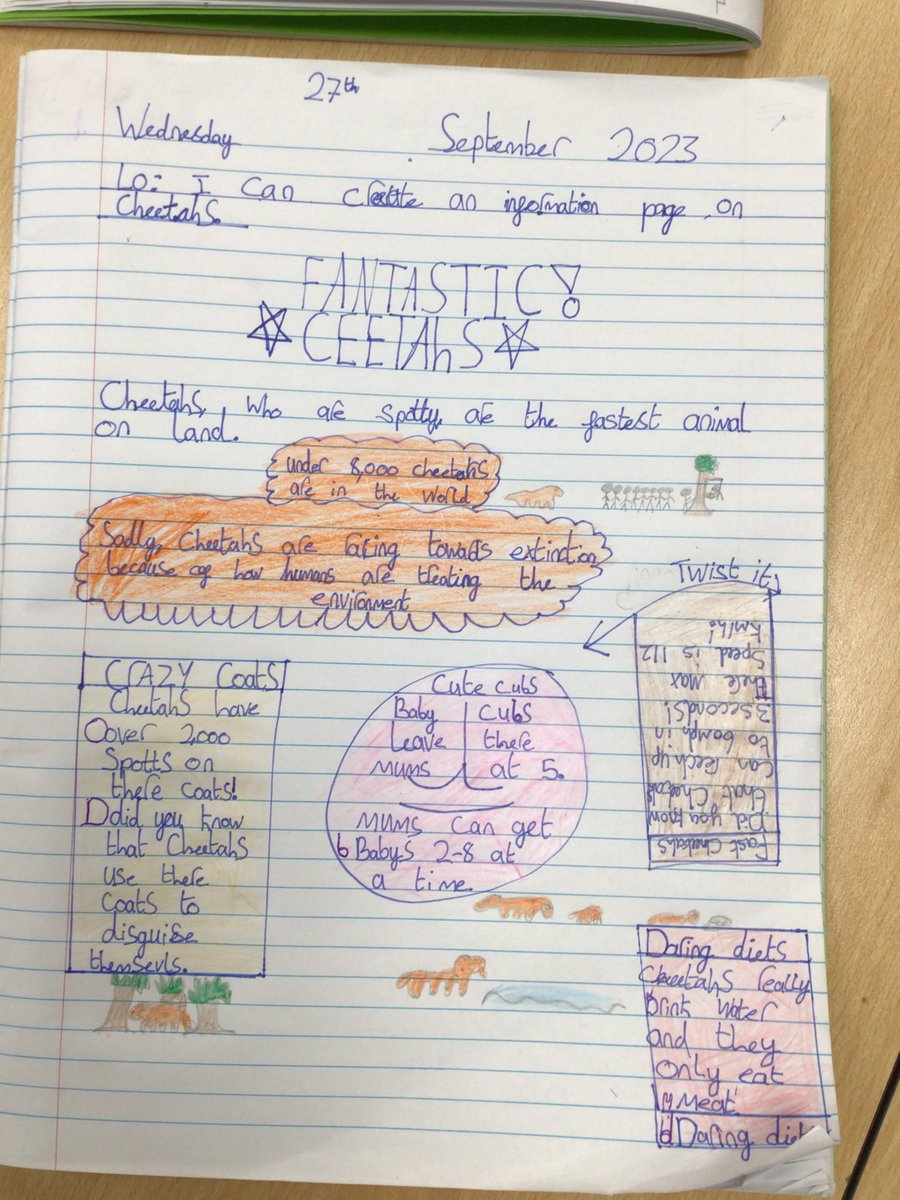 27th
Wednesday September 2023
Lo: I can create an information page on
Cheetahs.
FANTASTIC!
CEETAhS
Cheetahs, who are spotty, are the fastest animal
on land.
under 8,000 cheetahs
are in the world
Sadly, cheetahs are faring towards extinction
because of how humans are treating the
enviroment
Twist it
CRAZY Coats
Cheetahs have
Oover 2,000
Spotts on
there coats!
Ddid you know
that Cheetahs
use there
coats to
disguise
themsevls.
Cute cubs
Baby cubs
leave there
mums at 5.
mums can get
bBabys 2-8 at
a time.
Fast Cheetahs
Did you know
that Cheetah
can reech up
to 60mph in
3 seconds!
there max
speed is 112
km/h!
Daring diets
Cheetahs really
Drink water
and they
only eat
meat.
Daring diets